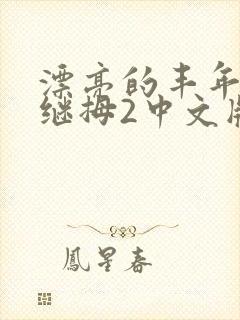 漂亮的丰年
继拇2中文版
鳳星春